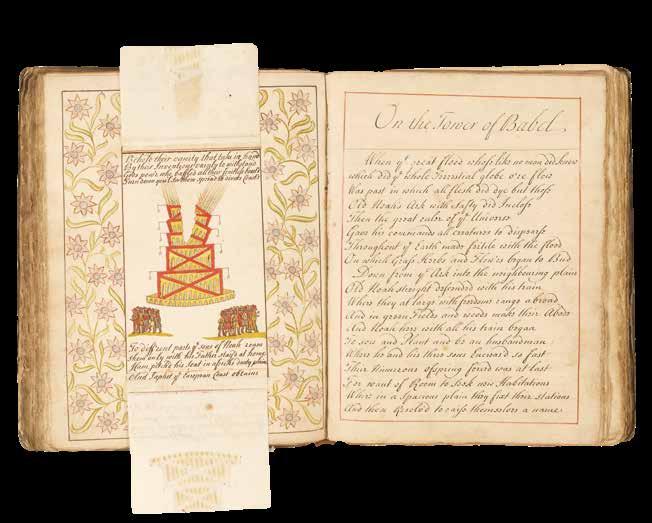 Behold their vanity that take in hand
By their Inventions vainly to withstand
Gods power who baffled all their fruitless
Turn down you'l see them spread to divers Coasts
To different parts ye sons of Noah roam
Shem only with his Father staid at home
Ham pitch'd his Seat in africks dusty plains
And Japhet ye European Coast obtains
On the Tower of Babel
When ye great flood whose like no man did know
which did ye whole Terrestial globe o're flow
Was past in which all flesh did dye but those
Old Noah's Ark with safty did Inclose
Then the great ruler of ye Univerce
Gave his commands all creatures to disperse
Throughout ye Earth made firtile with the flood
On which Grass Herbs and Flow'rs began to Bud
Down from ye Ark into the neighbouring plain
Old Noah streight descended with his train
Where they at large with freedom range abroad
And in green Fields and woods make their Abode
And Noah here with all his train began
To sow and Plant and be an husbandman
Where he and his three sons Encreas'd so fast
Their Numerous ofspring forced was at last
For want of Room to Seek new Habitations
Where in a Spacious plain they fixt their stations
And then Resolv'd to raise themselves a name